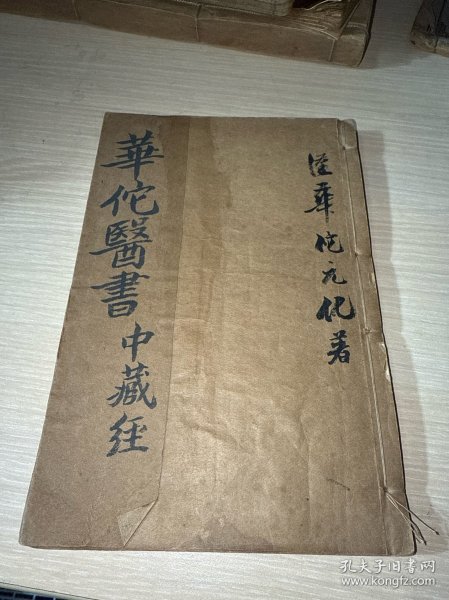 漢華佗元化著
華佗醫書中藏經
孔夫子旧书网
www.kongfz.com